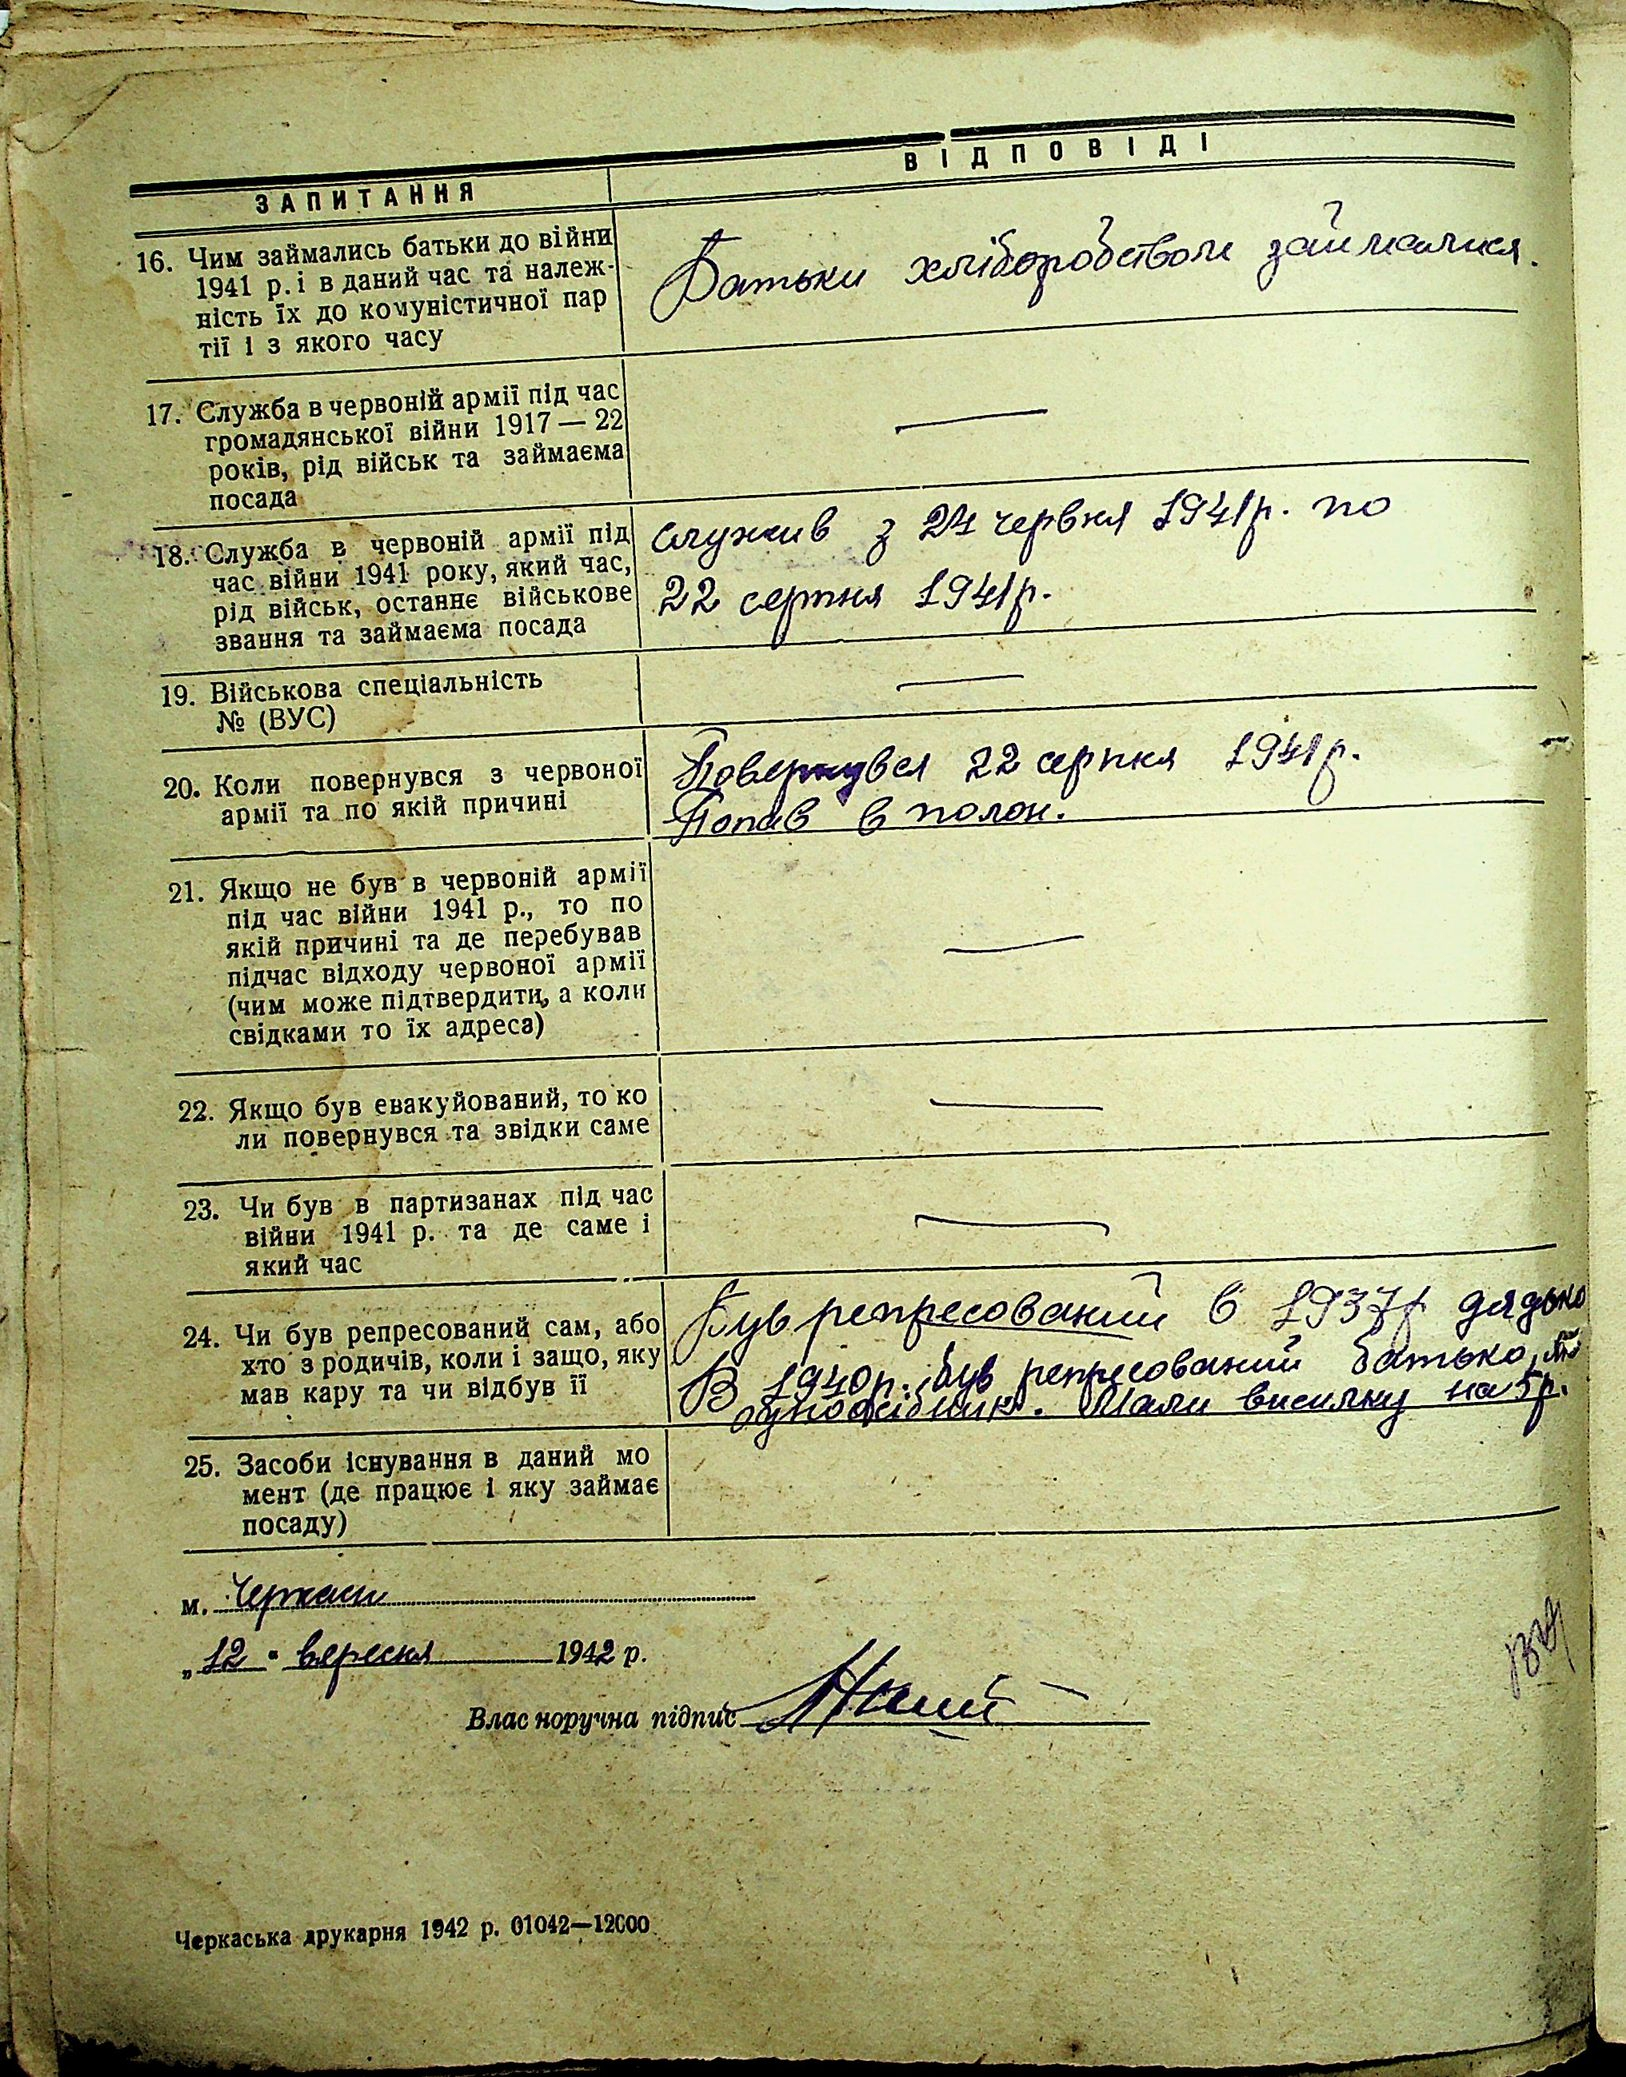 ЗАПИТАННЯ
ВІДПОВІДІ
16. Чим займались батьки до війни
1941 р. і в даний час та належ-
ність їх до комуністичної пар
тії і з якого часу
Батьки хліборобством займалися.
17. Служба в червоній армії під час
громадянської війни 1917 — 22
років, рід військ та займаєма
посада
—
18. Служба в червоній армії під
час війни 1941 року, який час,
рід військ, останнє військове
звання та займаєма посада
служив з 24 червня 1941 р. по
22 серпня 1941 р.
19. Військова спеціальність
№ (ВУС)
—
20. Коли повернувся з червоної
армії та по якій причині
Повернувся 22 серпня 1941 р.
Попав в полон.
21. Якщо не був в червоній армії
під час війни 1941 р., то по
якій причині та де перебував
підчас відходу червоної армії
(чим може підтвердити, а коли
свідками то їх адреса)
—
22. Якщо був евакуйований, то ко
ли повернувся та звідки саме
—
23. Чи був в партизанах під час
війни 1941 р. та де саме і
який час
—
24. Чи був репресований сам, або
хто з родичів, коли і защо, яку
мав кару та чи відбув її
Був репресований в 1937 р дядько
В 1940 р. був репресований батько,
Мали висилку на 5 р.
25. Засоби існування в даний мо
мент (де працює і яку займає
посаду)
м. Черкаси
„12" вересня 1942 р.
Власноручна підпис
Черкаська друкарня 1942 р. 01042—12000